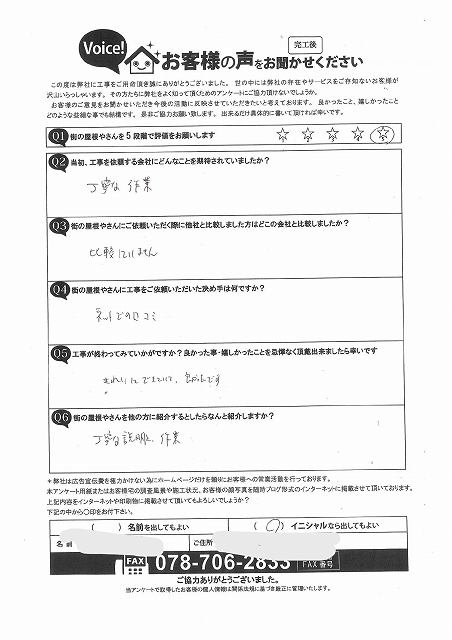 Voice!
完工後
お客様の声をお聞かせください
この度は弊社に工事をご用命頂き誠にありがとうございました。 世の中には弊社の存在やサービスをご存知ないお客様が
沢山いらっしゃいます。 その方たちに弊社をよく知って頂くためのアンケートにご協力頂けないでしょうか。
お客様のご意見をお聞かせいただき今後の活動に反映させていただきたいと考えております。 良かったこと、嬉しかったこと
どのような些細な事でも結構です。 是非ご協力お願い致します。 出来るだけ具体的に書いて頂ければ幸いです。
Q1 街の屋根やさんを5段階で評価をお願いします
☆ ☆ ☆ ☆ ☆
Q2 当初、工事を依頼する会社にどんなことを期待されていましたか?
丁寧な作業
Q3 街の屋根やさんにご依頼いただく際に他社と比較しました方はどこの会社と比較しましたか?
比較していません
Q4 街の屋根やさんに工事をご依頼いただいた決め手は何ですか?
ネットでの口コミ
Q5 工事が終わってみていかがですか?良かった事・嬉しかったことを忌憚なく頂戴出来ましたら幸いです
きれいにできていて、良かったです
Q6 街の屋根やさんを他の方に紹介するとしたらなんと紹介しますか?
丁寧な説明と作業
*弊社は広告宣伝費を極力かけない為にホームページだけを頼りにお客様への営業活動を行っております。
本アンケート用紙またはお客様宅の調査風景や施工状況、お客様の顔写真を随時ブログ形式のインターネットに掲載させて頂いております。
上記内容をインターネットや印刷物に掲載させて頂いてもよろしいでしょうか?
下記の中から〇印をお付下さい。
( ) 名前を出してもよい (〇) イニシャルなら出してもよい
名前 ご住所
FAX 078-706-2833 FAX番号
ご協力ありがとうございました。
当アンケートで取得したお客様の個人情報は関係法規に基づき厳正に管理いたします。